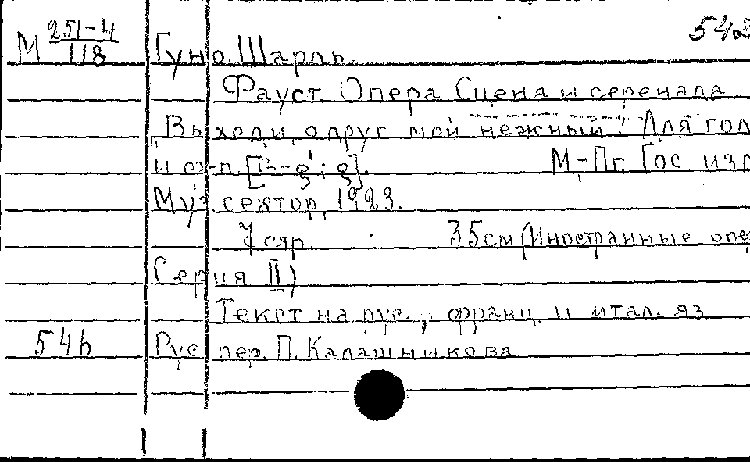 542
М 251-4/118 Гуно, Шарль.
Фауст. Опера. Сцена и серенада
"Выходи, о друг мой нежный". Для гол
и ф-п. М-Пг. Гос. изд
Муз. сектор, 1923.
7 стр. 35см (Иностранные опе
Серия II)
Текст на рус., франц. и итал. яз.
54b Рус. пер. П. Калашникова